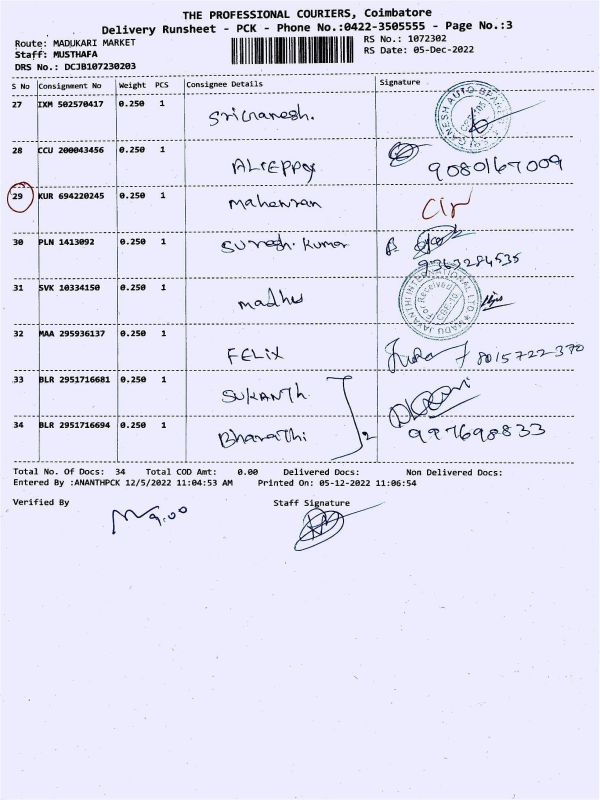 THE PROFESSIONAL COURIERS, Coimbatore
Delivery Runsheet - PCK - Phone No.:0422-3505555 - Page No.:3
Route: MADUKARI MARKET
RS No.: 1072302
Staff: MUSTHAFA
RS Date: 05-Dec-2022
DRS No.: DCJB107230203
S No Consignment No Weight PCS Consignee Details Signature
27 IXM 502570417 0.250 1 Sriganesh.
28 CCU 200043456 1 ALLEPPEY 9080167009
29 KUR 694220245 0.250 1 Maheswaran
30 PLN 1413092 0.250 1 Suresh Kumar 9363284535
31 SVK 10334150 0.250 1 madhu
32 MAA 295936137 0.250 1 FELIX 8015722370
33 BLR 2951716681 0.250 1 SUKANTH
34 BLR 2951716694 0.250 1 Bharathi 2 997698833
Total No. Of Docs: 34 Total COD Amt: 0.00 Delivered Docs: Non Delivered Docs:
Entered By :ANANTHPCK 12/5/2022 11:04:53 AM Printed On: 05-12-2022 11:06:54
Verified By Staff Signature